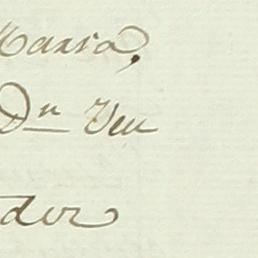 Maria,
Dn Ven
dor